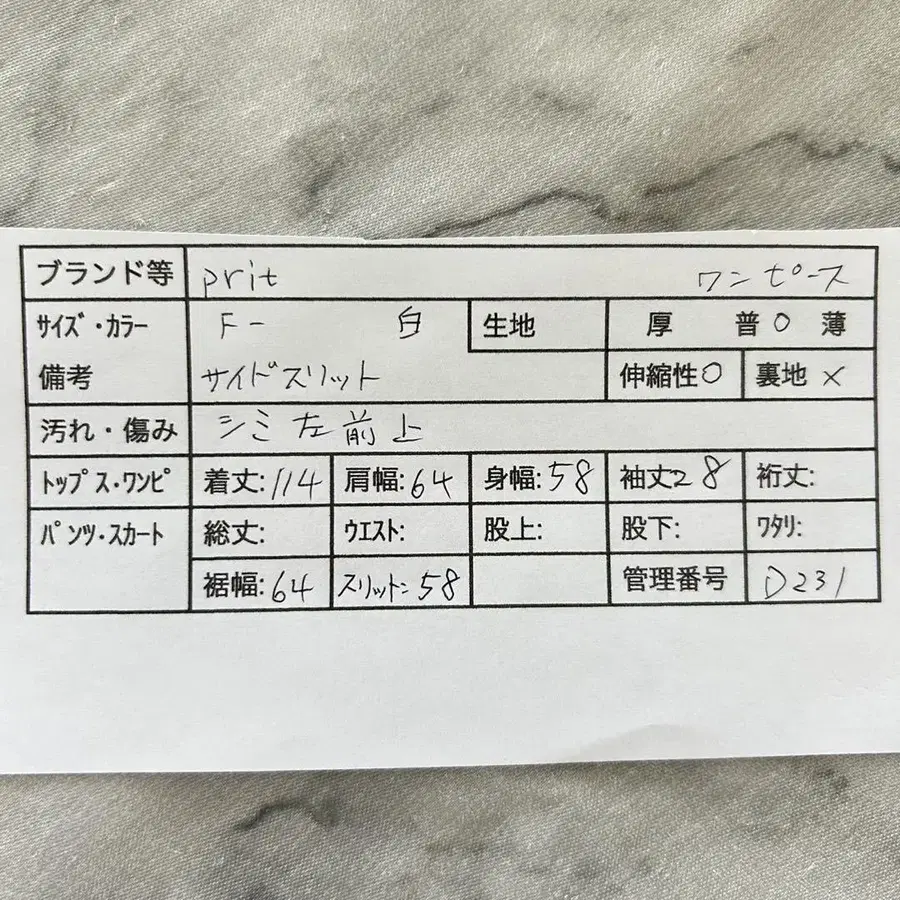 ブランド等 prit ワンピース
サイズ・カラー F- 白 生地 厚 普○ 薄
備考 サイドスリット 伸縮性○ 裏地 ×
汚れ・傷み シミ左前上
トップス・ワンピ 着丈:114 肩幅:64 身幅:58 袖丈28 裄丈:
パンツ・スカート 総丈: ウエスト: 股上: 股下: ワタリ:
裾幅:64 スリット:58 管理番号 D231